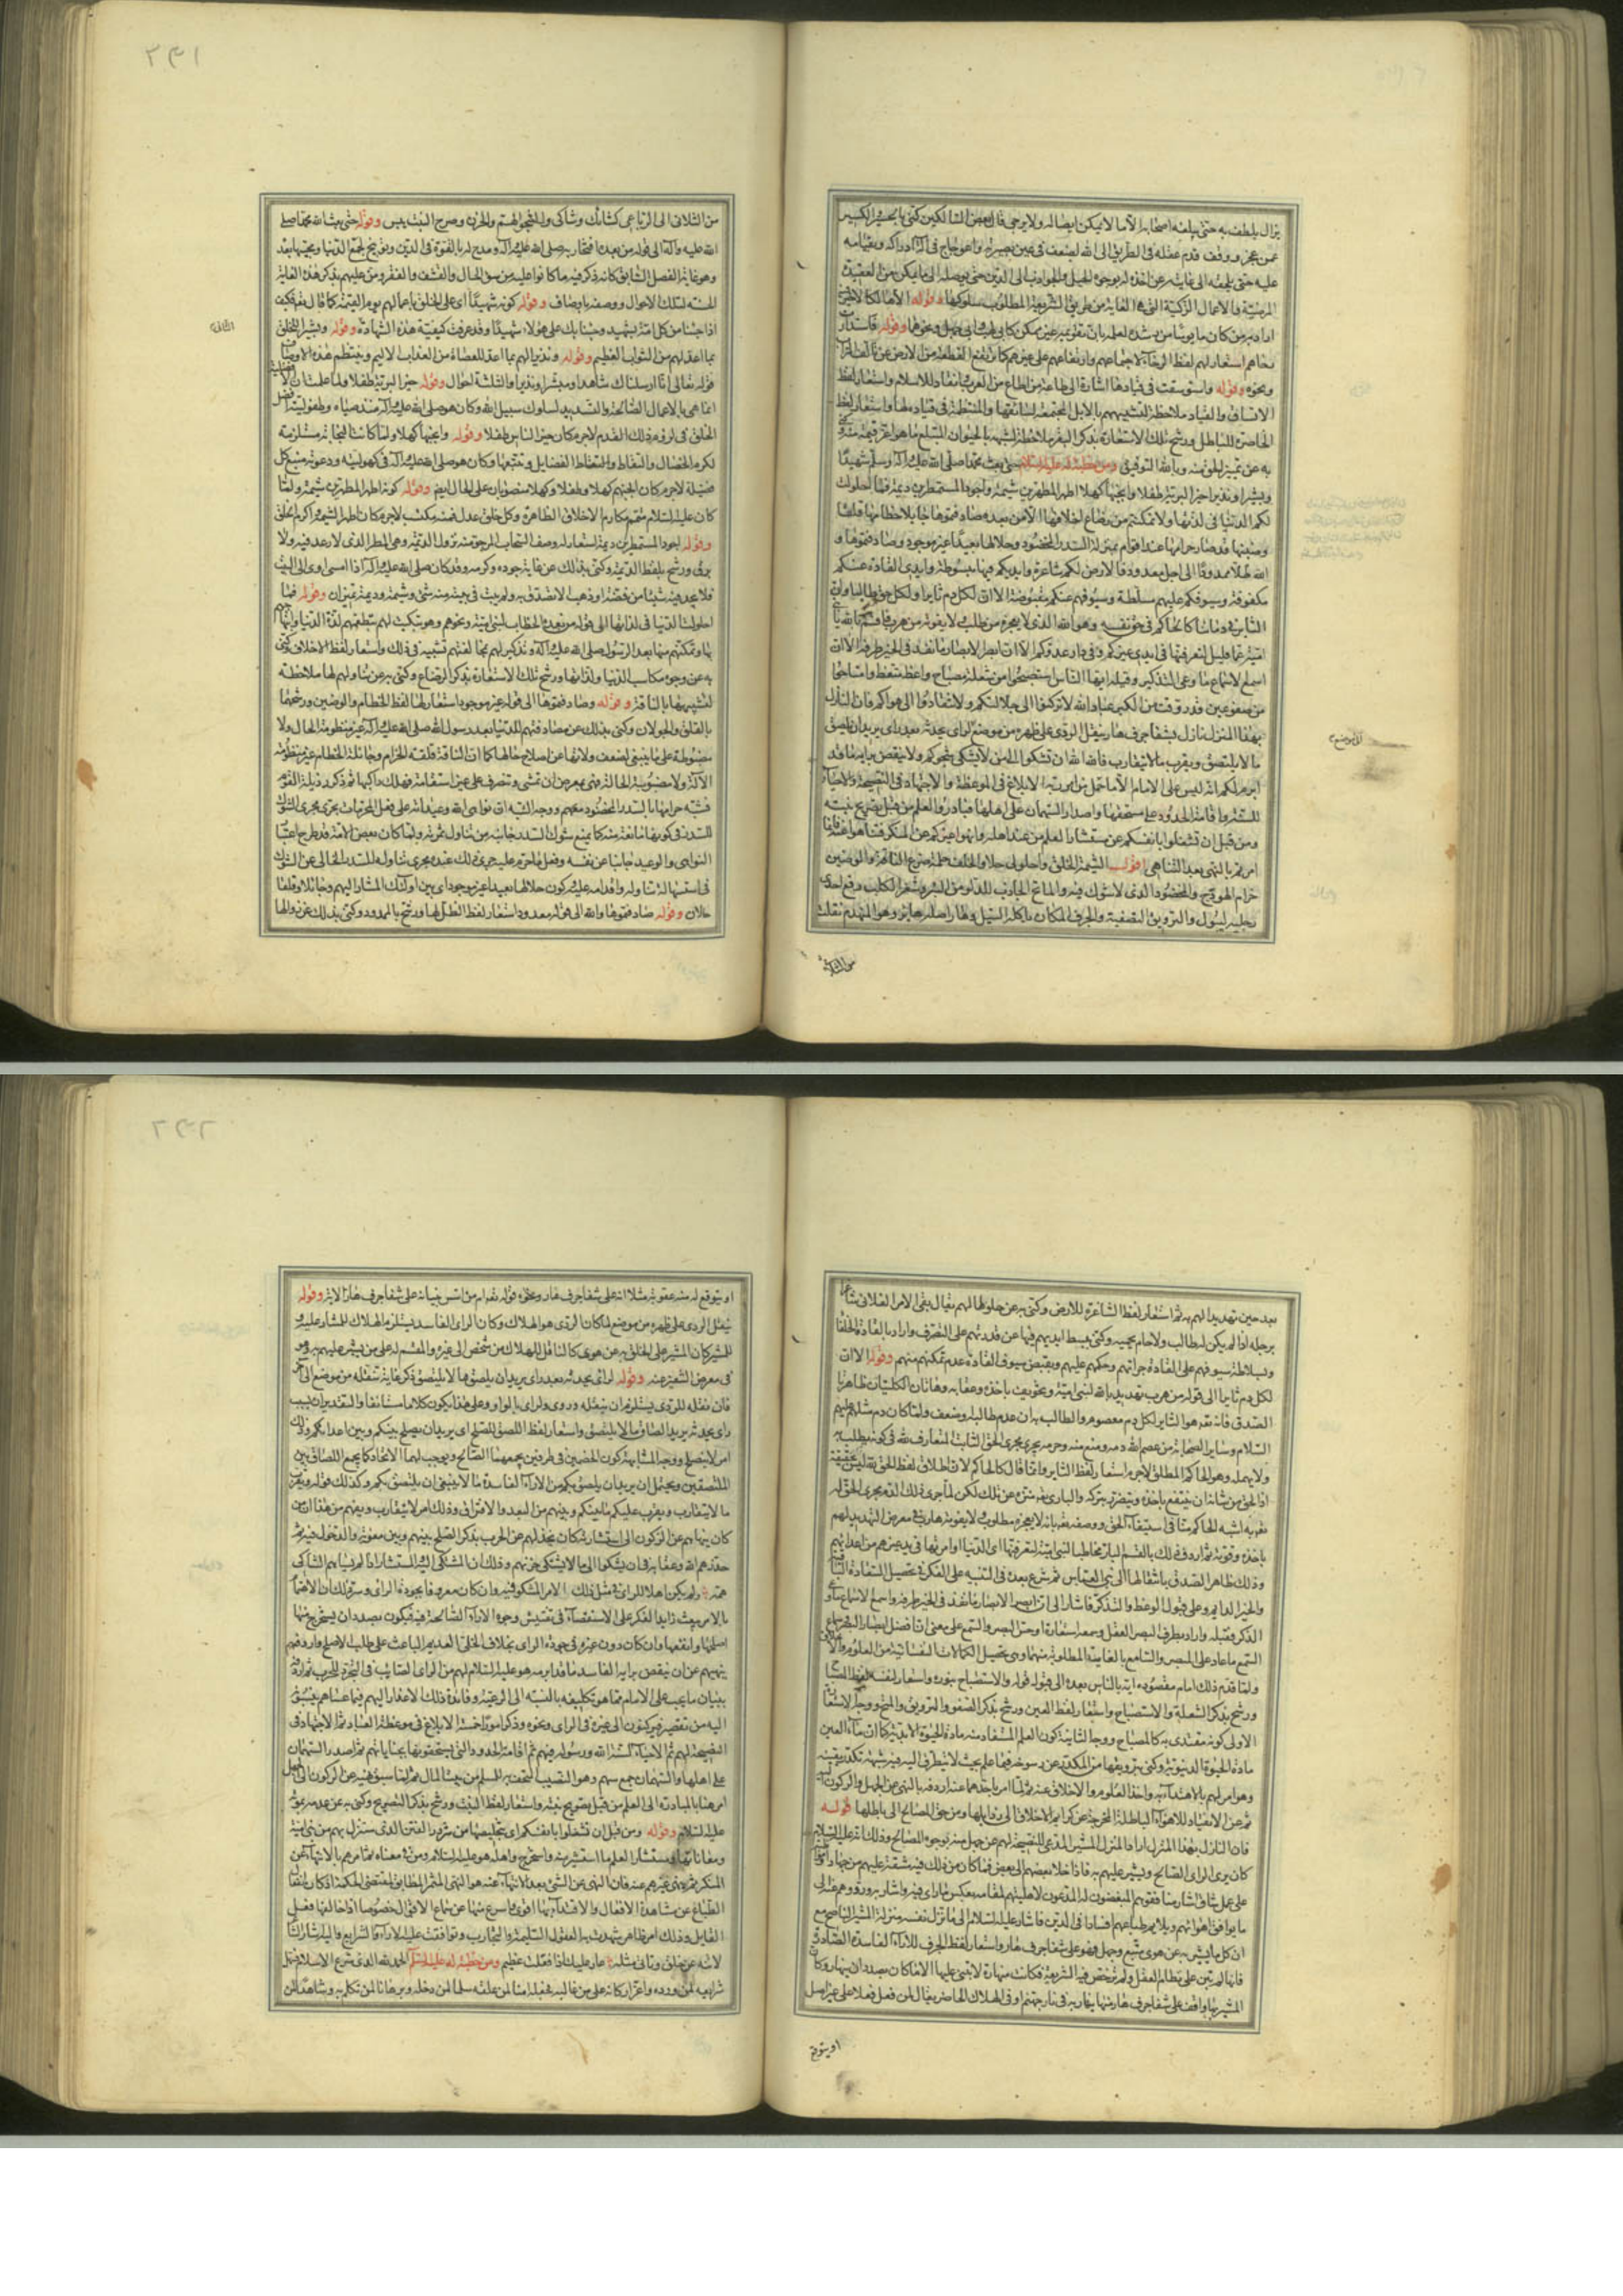 يزال يلطف به حتى يبلغه اصحابه الا ما لا يمكن ايصاله ولا يرجى قال بعض السالكين كنى بالحسير الكسير
عمن عجز ووقف قدم عقله فى الطريق الى الله لضعف فى عين بصيرته واعوجاج فى آلة ادراكه وبقيامه
عليه حتى يلحقه الى غايته عن اخذه له بوجوه الحيل والجواذب الى الدين حتى يوصله الى ما يمكن من العقيدة
المرضية والاعمال الزكية التى هى الغاية من طريق الشريعة المطلوب سلوكها وقوله الا هالكا لا خير فيه
اراد به من كان مايوسا من رشده لعلمه بان تقويمه غير ممكن كابى لهب وابى جهل ونحوهما وقوله فاستدارت
رحاهم استعار لهم لفظ الرحا لاجتماعهم وارتفاعهم على غيرهم كما يرتفع القطعة من الارض عن تالف التراب
ونحوه وقوله واستوسقت فى قيادها اشارة الى طاعة من اطاع من العرب وانقاد للاسلام واستعار لفظ
الاتساق والقياد ملاحظة لتشبيههم بالابل المجتمعة لسائقها والمنتظمة فى قياده لها واستعار لفظ
الخاصرة للباطل ورشح تلك الاستعارة بذكر البقر ملاحظة لشبهه بالحيوان المبتلع ما هو اعز قيمة منه وكنى
به عن تمييز الحق منه وبالله التوفيق ومن خطبة له عليه السلام حتى بعث محمدا صلى الله عليه وآله وسلم شهيدا
وبشيرا ونذيرا خير البرية طفلا وانجبها كهلا اطهر المطهرين شيمة واجود المستمطرين ديمة فما احلولت
لكم الدنيا فى لذتها ولا تمكنتم من رضاع اخلافها الا من بعده صادفتموها جايلا خطامها قلقا
وضينها قد صار حرامها عند اقوام بمنزلة السدر المخضود وحلالها بعيدا غير موجود وصادفتموها و
الله ظلا ممدودا الى اجل معدود فالارض لكم شاغرة وايديكم فيها مبسوطة وايدى القادة عنكم
مكفوفة وسيوفكم عليهم مسلطة وسيوفهم عنكم مقبوضة الا ان لكل دم ثايرا ولكل حق طالبا وان
الثاير فى دمائنا كالحاكم فى حق نفسه وهو الله الذى لا يعجزه من طلب ولا يفوته من هرب فاقسم بالله يا بنى
امية عما قليل لتعرفنها فى ايدى غيركم وفى دار عدوكم الا ان ابصر الابصار ما نفذ فى الخير طرفه الا ان
اسمع الاسماع ما وعى التذكير وقبله ايها الناس استصبحوا من شعلة مصباح واعظ متعظ وامتاحوا
من صفو عين قد روقت من الكدر عباد الله لا تركنوا الى جهالتكم ولا تنقادوا الى هواكم فان النازل
بهذا المنزل نازل بشفا جرف هار ينقل الردى على ظهره من موضع لراى يحدثه بعد راى يريد ان يلصق
ما لا يلتصق ويقرب ما لا يتقارب فالله الله ان تشكوا الى من لا يشكى شجوكم ولا ينقض برايه ما قد
ابرم لكم انه ليس على الامام الا ما حمل من امر ربه الابلاغ فى الموعظة والاجتهاد فى النصيحة والاحياء
للسنة واقامة الحدود على مستحقيها واصدار السهمان على اهلها فبادروا العلم من قبل تصويح نبته
ومن قبل ان تشغلوا بانفسكم عن مستثار العلم من عند اهله وانهوا غيركم عن المنكر وتناهوا عنه فانما
امرتم بالنهى بعد التناهى اقول الشيمة الخلق واحلولى حلا والخلف حلمة ضرع الناقة والوضين
حزام الهودج والمخضود الذى لا شوك فيه والماتح الجاذب للدلو من البئر وشغر الكلب رفع احدى
رجليه ليبول والترويق التصفية والجرف المكان ياكله السيل وهار اصله هاير وهو المنهدم نقلت
من الثلاثى
من الثلاثى الى الرباعى كشائك وشاكى والشجو الهم والحزن وصوح النبت يبس وقوله حتى بعث الله محمدا صلى
الله عليه وآله الى قوله من بعده اقتصار به صلى الله عليه وآله ومدح له بالقوة فى الدين وتوبيخ لجمع الدنيا ومحبتها بعده
وقوله كونه شهيدا اى على الخلق باعمالهم يوم القيمة كما قال تعالى فكيف
اذا جئنا من كل امة بشهيد وجئنا بك على هؤلاء شهيدا وقد عرفت كيفية هذه الشهادة وقوله وبشيرا للخلق
بما اعد لهم من الثواب العظيم وقوله ونذيرا لهم بما اعد للعصاة من العذاب الاليم وينتظم هذه الاوصاف
قوله تعالى انا ارسلناك شاهدا ومبشرا ونذيرا والثلثة احوال وقوله خير البرية طفلا ولما علمت ان الافضلية
انما هى بالاعمال الصالحة والتسديد لسلوك سبيل الله وكان هو صلى الله عليه وآله منذ صباه وطفوليته افضل
الخلق فى لزوم ذلك القدم لا جرم كان خير الناس طفلا وقوله وانجبها كهلا ولما كانت النجابة مستلزمة
لكرم الخصال والتقاط الفضايل وتتبعها وكان هو صلى الله عليه وآله فى كهوليته ودعوته منبع كل
فضيلة لا جرم كان انجبهم كهلا وطفلا وكهلا منصوبان على الحال ايضا وقوله كونه اطهر المطهرين شيمة ولما
كان عليه السلام متمم مكارم الاخلاق الظاهرة وكل خلق عدل فمنه مكتسب لا جرم كان اطهر الشيمة واكرم الخلق
وقوله اجود المستمطرين ديمة استعار له وصف السحاب المرجو منه نزول الديمة وهى المطر الذى لا رعد فيه ولا
برق ورشح بلفظ الديمة وكنى بذلك عن غاية جوده وكرمه وقد كان صلى الله عليه وآله اذا امسى اوى الى البيت
فلا يجد فيه شيئا من فضة او ذهب الا تصدق به ولم يبت فى بيته منه شئ وشيمة وديمة تميزان وقوله فما
احلولت الدنيا فى لذاتها الى قوله من بعده الخطاب لبنى امية ونحوهم وهو تبكيت لهم بتطعمهم لذة الدنيا
به عن وجوه مكاسب الدنيا ولذاتها ورشح تلك الاستعارة بذكر الرضاع وكنى به عن تناولهم لها ملاحظة
لتشبيهها بالناقة وقوله وصادفتموها الى قوله غير موجود استعار لها لفظ الخطام والوضين ورشحهما
بالقلق والجولان وكنى بذلك عن مصادفتهم للدنيا بعد رسول الله صلى الله عليه وآله غير منظومة الحال ولا
مضبوطة على ما ينبغى لضعف ولاتها عن اصلاح حالها كما ان الناقة قلقة الحزام وجائلة الخطام غير منظومة
الآلة ولا مضبوطة الحالة فهى بمعرض ان تمشى وتنصرف على غير استقامة فيهلك راكبها ثم ذكر رذيلة القوم
فشبه حرامها بالسدر المخضود معهم ووجه الشبه ان نواهى الله ووعيده على فعل المحرمات يجرى مجرى الشوك
للسدر فى كونها مانعة منه كما يمنع شوك السدر جانيه من تناول ثمرته ولما كان بعض الامة قد طرح اعتبار
النواهى والوعيد جانبا عن نفسه وفعل ما حرم عليه جرى ذلك عنده مجرى تناوله للسدر الخالى عن الشوك
فى استسهاله تناوله واقدامه عليه وكون حلالها بعيدا غير موجود اى بين اولئك المشار اليهم وجائلا وقلقا
حالان وقوله صادفتموها والله الى قوله معدود استعار لفظ الظل لها ورشح بالممدود وكنى بذلك عن زوالها
بعد حين تهديدا لهم به ثم استعار لفظ الشاغرة للارض وكنى به عن خلوها لهم يقال بقى الامر الفلانى شاغرا
برجله اذا لم يكن له طالب ولا حام يحميه وكنى ببسط ايديهم فيها عن قدرتهم على التصرف واراد بالقادة الخلفا
وبسلاطة سيوفهم على القادة جراتهم وحكمهم عليهم وبقبض سيوف القادة عدم تمكنهم منهم وقوله الا ان
لكل دم ثايرا الى قوله من هرب تهديد بالله لبنى امية وتخويف باخذه وعقابه وهاتان الكليتان ظاهرتا
الصدق فانه تعالى هو الثاير لكل دم معصوم والطالب به ان عدم طالبه او ضعف ولما كان دم مثلهم عليهم
السلام وساير الصحابة من عصم الله دمه ومنع منه وحرمه يجرى مجرى الحق الثابت المتعارف لله فى كونه يطلب به
ولا يهمله وهو الحاكم المطلق لا جرم استعار لفظ الثاير وانما قال كالحاكم لان اطلاق لفظ الحق له تعالى ليس بحقيقة
اذ الحق من شانه ان ينتفع باخذه ويتضرر بتركه والبارى تعالى منزه عن ذلك لكن لما جرى ذلك الدم مجرى الحق له
تعالى به اشبه الحاكم منا فى استيفاء الحق ووصفه تعالى بانه لا يعجزه مطلوب ولا يفوته هارب فى معرض التهديد لهم
باخذه وقوته ثم اردف ذلك بالقسم البار مخاطبا لبنى امية لتعرفنها اى الدنيا وامرتها فى يد غيرهم من اعدائهم
وذلك ظاهر الصدق بانتقالها الى بنى العباس ثم شرع بعده فى التنبيه على الفكر فى تحصيل السعادة الباقية
والخير الدايم وعلى قبول الوعظ والتذكر فاشار الى ان ابصر الابصار ما نفذ فى الخير طرفه واسمع الاسماع ما وعى
الذكر فقبله واراد بطرف البصر العقل وسمعه استعارة او حس البصر والسمع على معنى ان افضل ابصار البصر وسماع
السمع ما عاد على المبصر والسامع بالغاية المطلوبة منهما وهى تحصيل الكمالات النفسانية من العلوم والاخلاق
ولما قدم ذلك امام مقصوده ايه بالناس بعده الى قبول قوله والاستصباح بنوره واستعار لنفسه لفظ المصباح
ورشح بذكر الشعلة والاستصباح واستعار لفظ العين ورشح بذكر الصفو والترويق والمتح ووجه الاستعارة
الاولى كونه مقتدى به كالمصباح ووجه الثانية كون العلم المستفاد منه مادة الحيوة الابدية كما ان ماء العين
مادة الحيوة الدنيوية وكنى بترويقها من الكدر عن رسوخه فيما علم بحيث لا يتطرق اليه فيه شبهة تكدر يقينه
وهو امر لهم بالاهتداء به واخذ العلوم والاخلاق عنه ثم لما امر باخذهما عنه اردفه بالنهى عن الجهل والركون اليه
ثم عن الانقياد للاهواء الباطلة المخرجة عن كرايم الاخلاق الى رذايلها ومن حق المصالح الى باطلها قوله
فان النازل بهذا المنزل اراد المنزل المشير المدعى للنصيحة لهم عن جهل منه بوجوه المصالح وذلك انه عليه السلام
كان يرى الراى الصالح ويشير عليهم به فاذا خلا بعضهم الى بعض فما كان من ذلك فيه مشقة عليهم من جهاد او مواظبة
ما يوافق اهوائهم ويلايم طباعهم افسادا فى الدين فاشار عليه السلام الى ما نزل نفسه منزلة المشير الناصح مع
ان كل ما يشير به عن هوى متبع وجهل فهو على شفا جرف هار واستعار لفظ الجرف للاراء الفاسدة الصادرة
فانها لم تبن على نظام العقل ولم ترخص فيه الشريعة فكانت منهارة لا يبتنى عليها الا ما كان بصدد ان ينهار وكان
المشير بها واقف على شفا جرف هار منها ينهار به فى نار جهنم او فى الهلاك الحاضر يقال لمن فعل فعلا على غير اصل
او يتوقع
او يتوقع له منه عقوبة مثلا انه على شفا جرف هار ونحوه قوله تعالى ام من اسس بنيانه على شفا جرف هار الآية وقوله
ينقل الردى على ظهره من موضع لما كان الردى هو الهلاك وكان الراى الفاسد يستلزم الهلاك للمشار عليه و
للمشير كان المشير على الخلق به عن هوى كالناقل للهلاك من شخص الى غيره والمقسم له على من يشير عليهم به وهو
فى معرض التنفير عنه وقوله لراى يحدثه بعد راى يريد ان يلصق ما لا يلتصق ذكر غاية تنقله من موضع الى آخر
امر لا يصلح ووجه المشابهة كون الخصمين فى طرفين يجمعهما الصالح ويوجب لهما الاتحاد كما يجمع اللصاق بين
الملتصقين ويحتمل ان يريد ان يلصق بكم من الاراء الفاسدة ما لا ينبغى ان يلتصق بكم وكذلك قوله ويقرب
ما لا يتقارب ويقرب عليكم ما بينكم وبينهم من البعد والافتراق وذلك امر لا يتقارب ويفهم من هذا انه
حذرهم الله وعقابه فى ان يشكوا الى ما لا يشكى حزنهم وذلك ان المشتكى اليه المستشار اذا لم يساهم الشاكى
همه ولم يكن اهلا للراى فى مثل ذلك الامر المشكو فيه وان كان معروفا بجودة الراى وسر ذلك ان الاهتمام
بالامر يبعث زايد الفكر على الاستقصاء فى تفتيش وجوه الاراء الصالحة فيه فيكون بصدد ان يستخرج منها
اصلحها وانفعها وان كان دون غيره فى جودة الراى بخلاف الخلى القديم الباعث على طلب الاصلح واردفه
بنهيهم عن ان ينقض برايه الفاسد ما قد ابرمه هو عليه السلام لهم من الراى الصايب فى التجرد للحرب ثم اردفه
ببيان ما يجب على الامام مما هو تكليفه بالنسبة الى الرعية وفائدة ذلك الاعذار اليهم فيما عساهم ينسبون
اليه من تقصير فيركنون الى غيره فى الراى ونحوه وذكر امورا خمسة الابلاغ فى موعظة العباد ثم الاجتهاد فى
النصيحة لهم ثم الاحياء لسنة الله ورسوله فيهم ثم اقامة الحدود التى يستحقونها بجناياتهم ثم اصدار السهمان
على اهلها والسهمان جمع سهم وهو النصيب المستحق به للمسلم من بيت المال ثم لما سبق نهيه عن الركون الى الجهل
امر هنا بالمبادرة الى العلم من قبل تصويح نبته واستعار لفظ النبت ورشح بذكر التصويح وكنى به عن عدمه بموته
عليه السلام وقوله ومن قبل ان تشغلوا بانفسكم اى بتخليصها من شرور الفتن الذى ستنزل بهم من بنى امية
ومعاناتها ومستثار العلم ما استثير منه واستخرج واهله هو عليه السلام ومن فى معناه ثم امرهم بالانتهاء عن
المنكر ثم بنهى غيرهم عنه فان النهى عن الشئ بعد الانتهاء عنه هو النهى المثمر المطابق لمقتضى الحكمة اذ كان انفعال
الطباع عن مشاهدة الافعال والاقتداء بها اقوى واسرع منها عن سماع الاقوال خصوصا اذا خالفها فعل
القايل وذلك امر ظاهر شهدت به العقول السليمة والتجارب وتوافقت عليه الاراء والشرايع واليه اشار الشاعر
لا تنه عن خلق وتاتى مثله عار عليك اذا فعلت عظيم ومن خطبة له عليه السلام الحمد لله الذى شرع الاسلام فسهل
شرايعه لمن ورده واعز اركانه على من غالبه فجعله امنا لمن علقه وسلما لمن دخله وبرهانا لمن تكلم به وشاهدا لمن